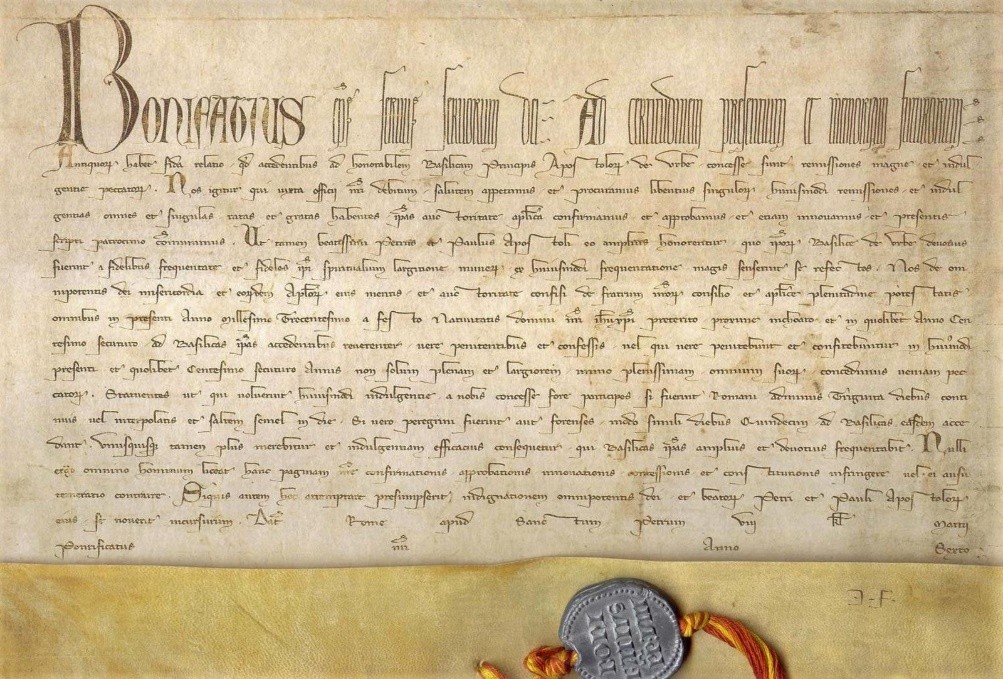 Bonifatius ep̄s seruus seruorum dei. Ad certitudinem presentium et memoriam futurorum.
Antiquoꝝ habet fida relatio, qđ accedentibus ad honorabilem Basilicam Principis Apostoloꝝ de Vrbe concesse sunt remissiones magne et indul
gentie peccatoꝝ. Nos igitur qui iuxta officij nr̄i debitum salutem appetimus et procuramus libentius singuloꝝ, huiusmodi remissiones et indul
gentias omnes et singulas ratas et gratas habentes, ip̄as auctoritate ap̄lica confirmamus et approbamus et etiam innouamus et presentis
scripti patrocinio cōmunimus. Ut tamen beatissimi Petrus et Paulus Apostoli eo amplius honorentur, quo ip̄oꝝ Basilice de Vrbe deuotius
fuerint a fidelibus frequentate et fideles ip̄i spiritalium largitione muneꝝ ex huiusmodi frequentatione magis senserint se refectos. Nos de om
nipotentis dei misericordia et eorūdem Ap̄loꝝ eius meritis et auctoritate confisi de fratrum nr̄oꝝ consilio et ap̄lice plenitudine potestatis
omnibus in presenti Anno Millesimo Trecentesimo a festo Natiuitatis domini nr̄i ih̄u xp̄i preterito proxime inchoato et in quolibet Anno Cen
tesimo secuturo ad Basilicas ip̄as accedentibus reuerenter, uere penitentibus et confessis, uel qui uere penitebunt et confitebuntur in hui᾽modi
presenti et quolibet Centesimo secuturo Annis non solum plenam et largiorem immo plenissimam omnium suoꝝ concedimus ueniam pec
catoꝝ. Statuentes ut qui uoluerint huiusmodi indulgentie a nobis concesse fore participes si fuerint Romani adminus Triginta diebus conti
nuis uel interpolatis et saltem semel in die. Si uero peregrini fuerint aut forenses modo simili diebus Quindecim ad Basilicas easdem acce
dant. Vnusquisqꝫ tamen plus merebitur et indulgentiam efficacius consequetur, qui Basilicas ip̄as amplius et deuotius frequentabit. Nulli
ergo omnino hominum liceat hanc paginam nr̄e confirmationis approbationis innouationis concessionis et constitutionis infringere uel ei ausu
temerario contraire. Siquis autem hoc attemptare presumpserit, indignationem omnipotentis dei et beatoꝝ Petri et Pauli Apostoloꝝ
eius se nouerit incursurum. Dat̄ Rome apud Sanctum Petrum VIII kl̄ Martii
Pontificatus nr̄i Anno Sexto